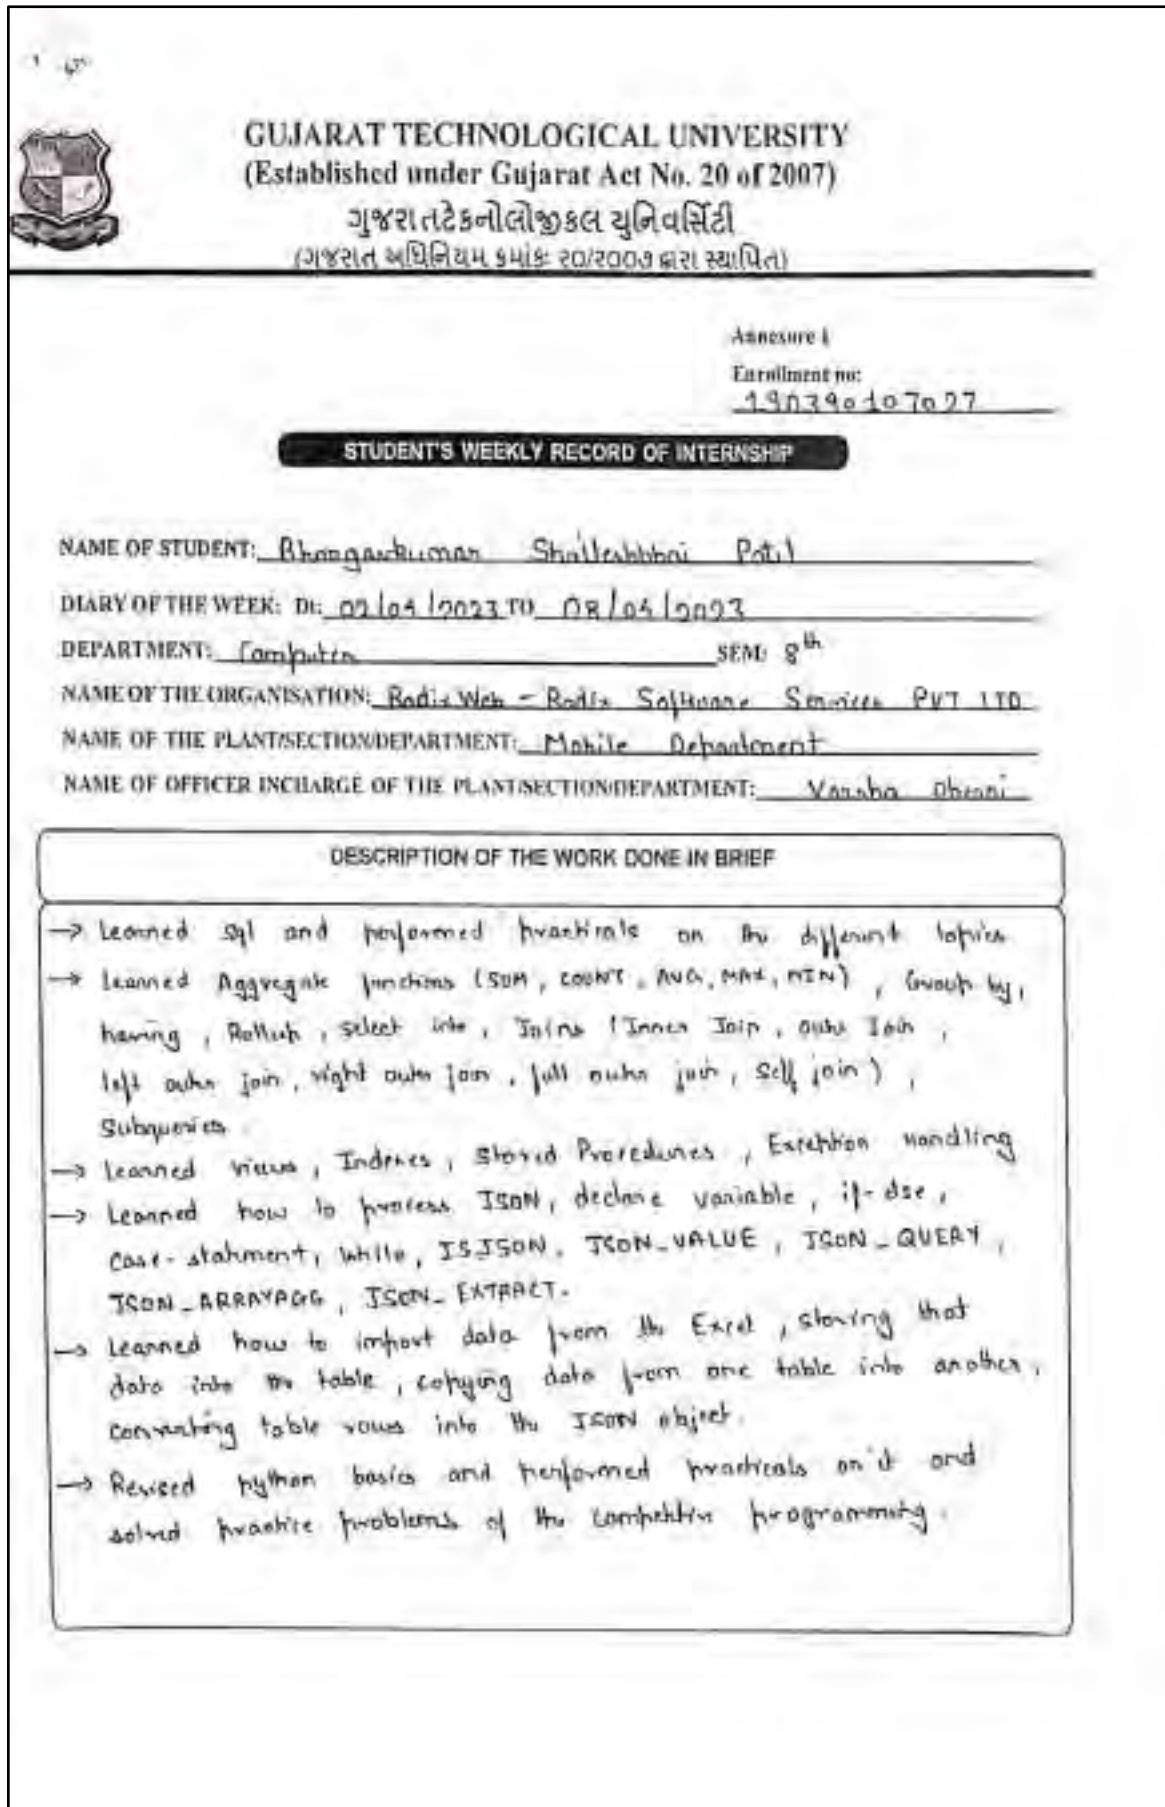 GUJARAT TECHNOLOGICAL UNIVERSITY
(Established under Gujarat Act No. 20 of 2007)
ગુજરાતટેકનોલોજીકલ યુનિવર્સિટી
(ગુજરાત અધિનિયમ ક્રમાંકઃ ૨૦/૨૦૦૭ દ્વારા સ્થાપિત)
Annexure 1
Enrollment no:
190390107027
STUDENT'S WEEKLY RECORD OF INTERNSHIP
NAME OF STUDENT: Patil
DIARY OF THE WEEK: Dt: /2023 TO /2023
DEPARTMENT: Computer SEM: 8th
NAME OF THE ORGANISATION: Radix Web - Radix Software Services PVT LTD
NAME OF THE PLANT/SECTION/DEPARTMENT: Mobile Department
NAME OF OFFICER INCHARGE OF THE PLANT/SECTION/DEPARTMENT: Varsha
DESCRIPTION OF THE WORK DONE IN BRIEF
→ Learned Sql and performed practicals on the different topics
→ Learned Aggregate functions (SUM, COUNT, AVG, MAX, MIN), Group by,
having, Rollup, select into, Joins (Inner Join, outer Join,
left outer join, right outer join, full outer join, Self join),
Subqueries
→ Learned views, Indexes, Stored Procedures, Exception Handling
→ Learned how to process JSON, declare variable, if-else,
case-statment, while, ISJSON, JSON_VALUE, JSON_QUERY,
JSON_ARRAYAGG, JSON_EXTRACT.
→ Learned how to import data from the Excel, storing that
data into the table, copying data from one table into another,
converting table rows into the JSON object.
→ Revised python basics and performed practicals on it and
solved practice problems of the competitive programming.